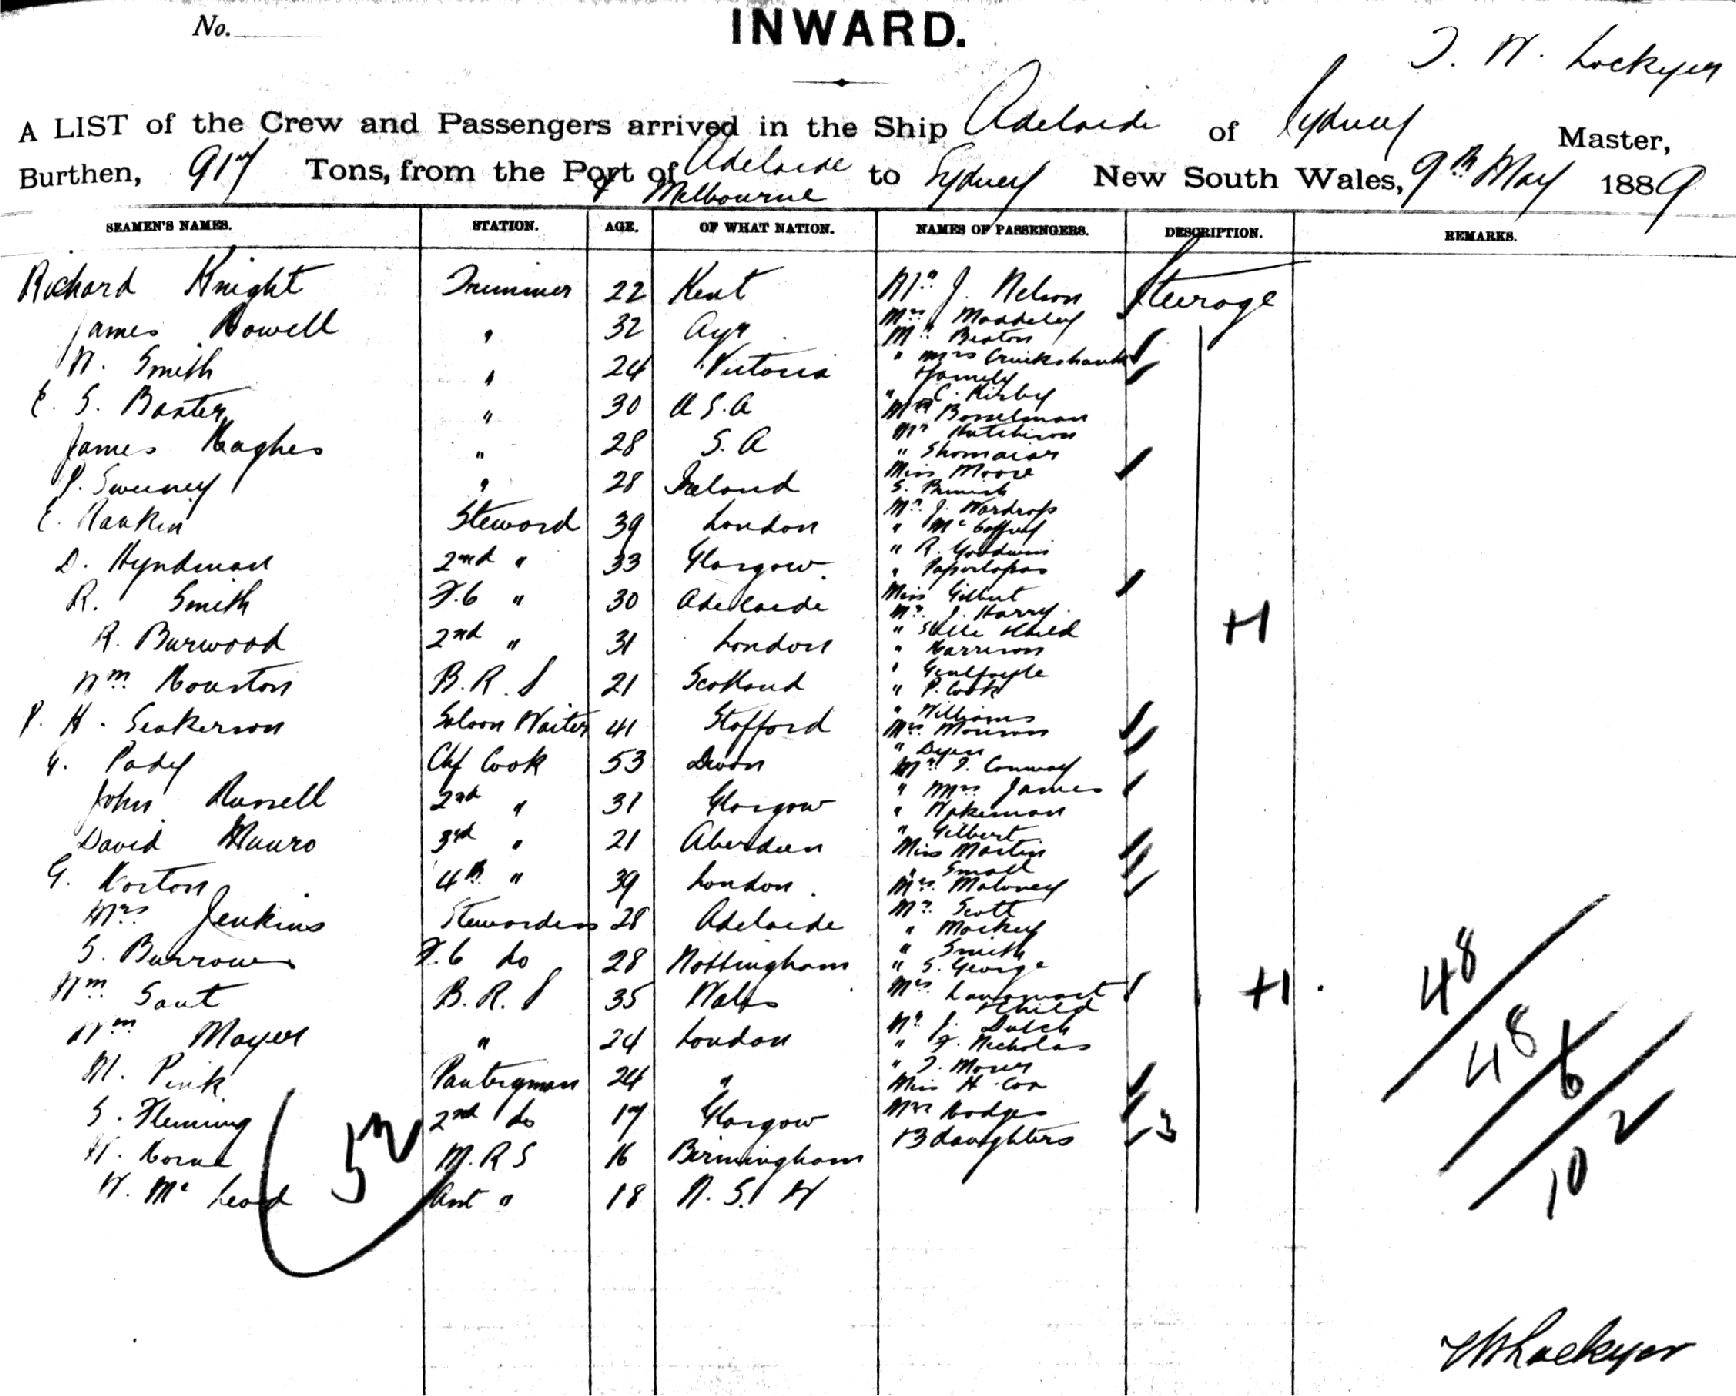 No.
INWARD.
T. W. Lockyer
A LIST of the Crew and Passengers arrived in the Ship Adelaide of Sydney Master,
Burthen, 917 Tons, from the Port of Adelaide & Melbourne to Sydney New South Wales, 9th May 1889
SEAMEN'S NAMES. STATION. AGE. OF WHAT NATION. NAMES OF PASSENGERS. DESCRIPTION. REMARKS.
Richard Knight Trimmer 22 Kent
James Howell " 32 Ayr
W. Smith " 24 Victoria
E. S. Baxter " 30 U S A
James Hughes " 28 S. A
P. Sweeney " 28 Ireland
E. Rankin Steward 39 London
D. Hyndman 2nd " 33 Glasgow.
R. Smith F.C " 30 Adelaide
R. Burwood 2nd " 31 London
Wm Houston B. R. S 21 Scotland
P. H. Seakerson Saloon Waiter 41 Stafford
G. Pady Chf Cook 53 Devon
John Russell 2nd " 31 Glasgow
David Munro 3rd " 21 Aberdeen
G. Horton 4th " 39 London.
Mrs Jenkins Stewardess 28 Adelaide
S. Burrows F.C do 28 Nottingham
Wm Saut B. R. S 35 Wales
Wm Mayer " 24 London
M. Pink Pantryman 24 "
S. Fleming 2nd do 17 Glasgow
W. Horne M. R S 16 Birmingham
W. Mc Leod Ant " 18 N. S. W
52
Mr J. Nelson Steerage
Mrs Maddeley
Mr Beaton
" Mrs Cruikshank
family
" C. Kirby
Mr Bosselman
Mr Hutchison
"
Miss Moore
S.
Mr J. Wardrop
" Mc Caffrey
" R. Goodwin
"
Miss Gilbert
Mr J. Harry
" child
" Harrison
"
" P. Cook
" Williams
Mrs Monson
" Dyer
Mr T. Conway
" Mrs James
" Wakeman
" Gilbert
Miss Martin
" Small
Mrs Maloney
Mr Scott
" Mackey
" Smith
" S. George
Mrs
child
Mr J. Dutch
" F. Nicholas
" T. Moses
Miss H. Cox
Mrs Hodges
13 daughters 3
48
48
6
102
TWLockyer